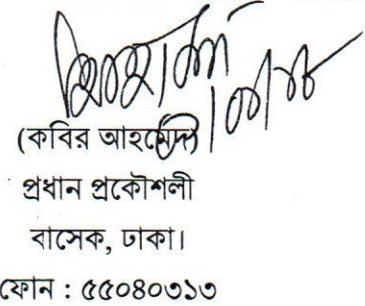 (কবির আহমেদ)
প্রধান প্রকৌশলী
বাসেক, ঢাকা।
ফোন : ৫৫০৪০৩১৩